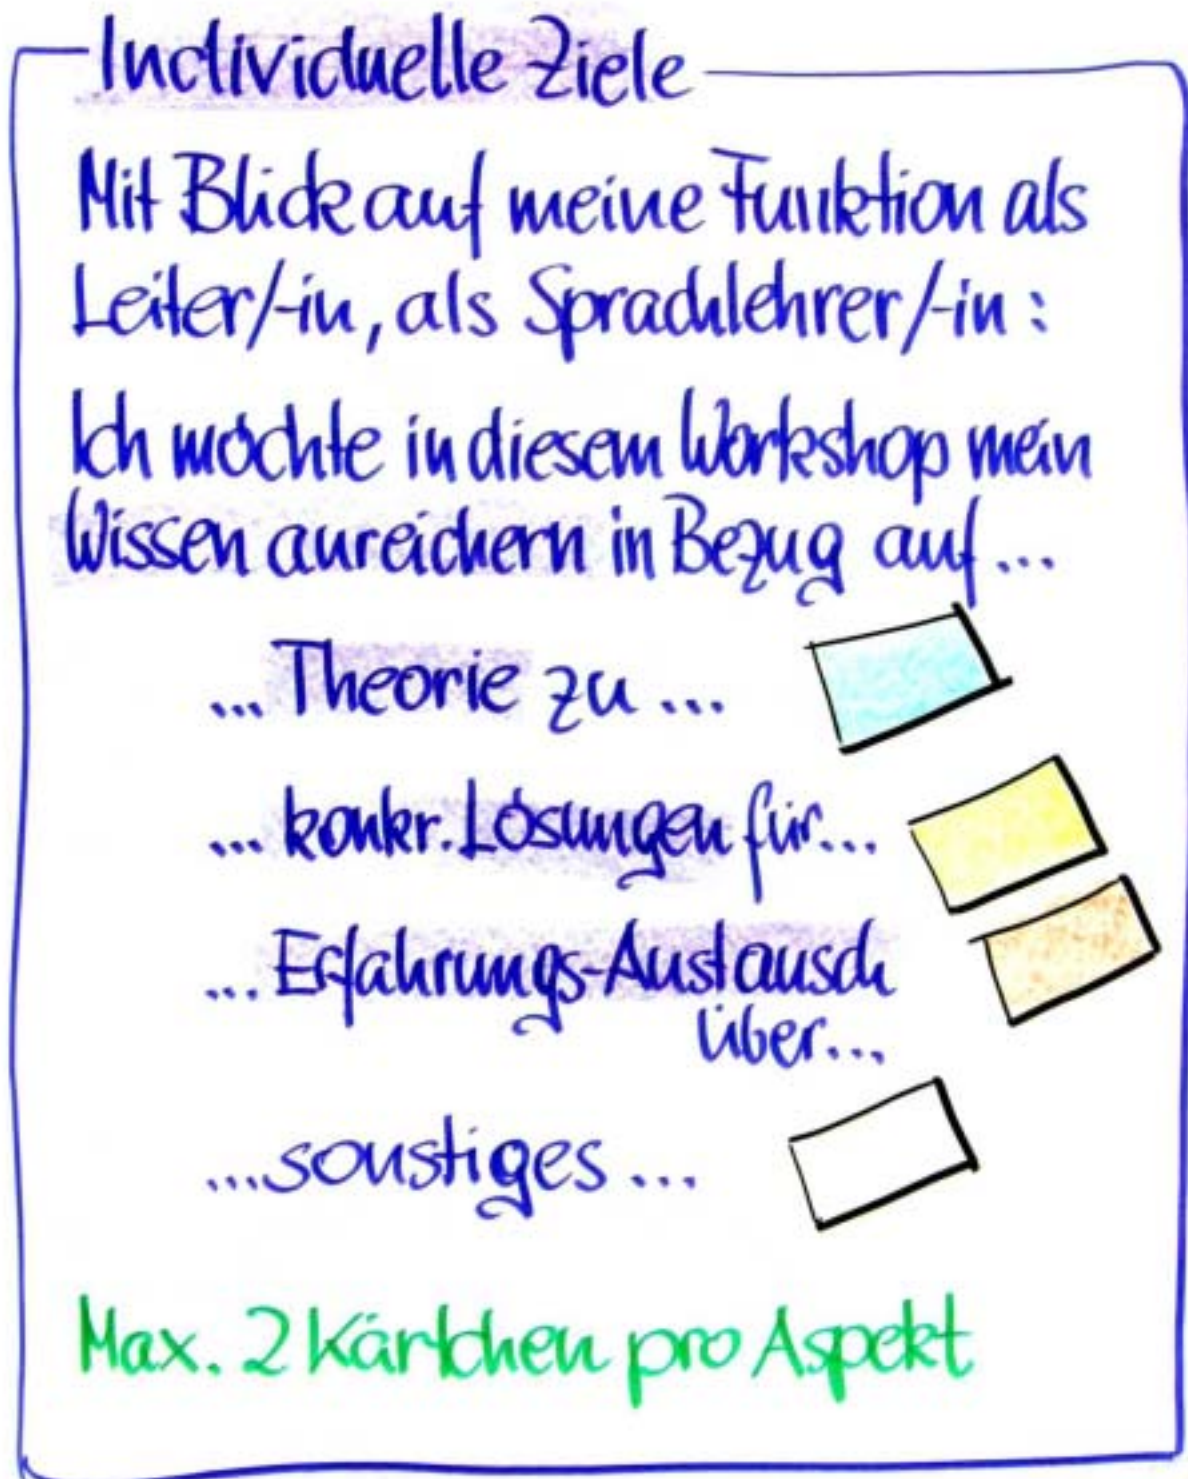 Individuelle Ziele
Mit Blick auf meine Funktion als
Leiter/-in, als Sprachlehrer/-in:
Ich möchte in diesem Workshop mein
Wissen anreichern in Bezug auf...
...Theorie zu...
... konkr. Lösungen für...
... Erfahrungs-Austausch
über...
...sonstiges...
Max. 2 Kärtchen pro Aspekt